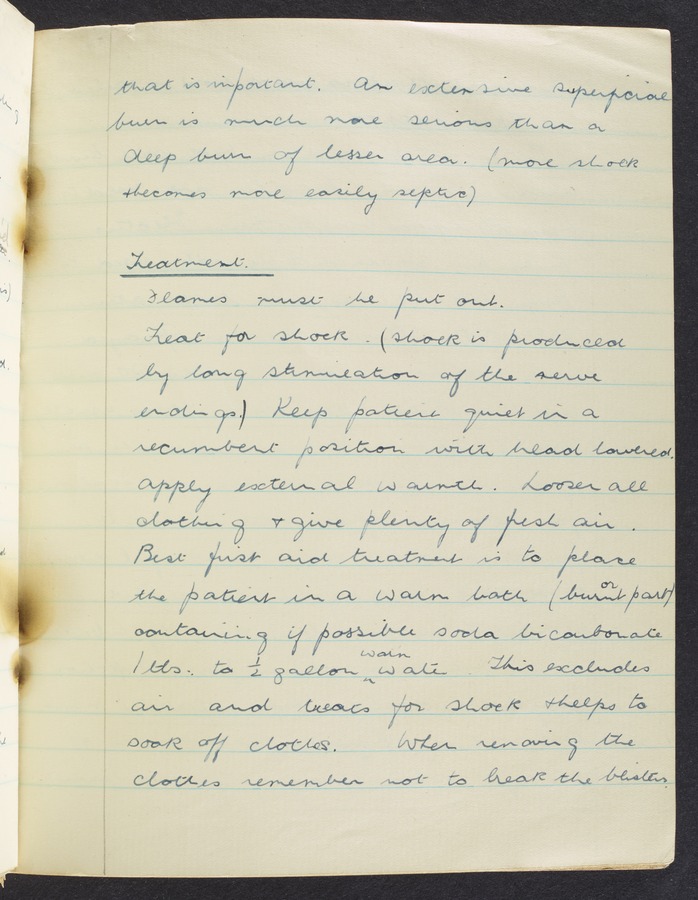 that is important. An extensive superficial
burn is much more serious than a
deep burn of lesser area. (more shock
+becomes more easily septic)
Treatment.
Flames must be put out.
Treat for shock. (shock is produced
by long stimulation of the nerve
endings) Keep patient quiet in a
recumbent position with head lowered.
Apply external warmth. Loosen all
clothing + give plenty of fresh air.
Best first aid treatment is to place
the patient in a warm bath (or burnt part)
containing if possible soda bicarbonate
1 tbs. to ½ gallon warm water. This excludes
air and treats for shock + helps to
soak off clothes. When removing the
clothes remember not to break the blisters.